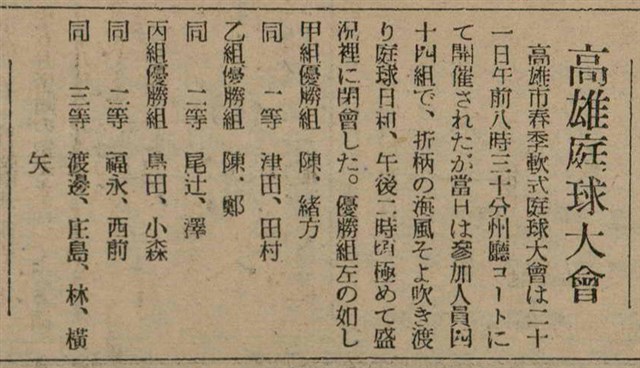 高雄庭球大會
高雄市春季軟式庭球大會は二十
一日午前八時三十分州廳コートに
て開催されたが當日は參加人員四
十四組で、折柄の海風そよ吹き渡
り庭球日和、午後二時頃極めて盛
況裡に閉會した。優勝組左の如し
甲組優勝組 陳、緒方
同 一等 津田、田村
乙組優勝組 陳、鄭
同 二等 尾辻、澤
丙組優勝組 島田、小森
同 二等 福永、西前
同 三等 渡邊、庄島、林、橫
矢